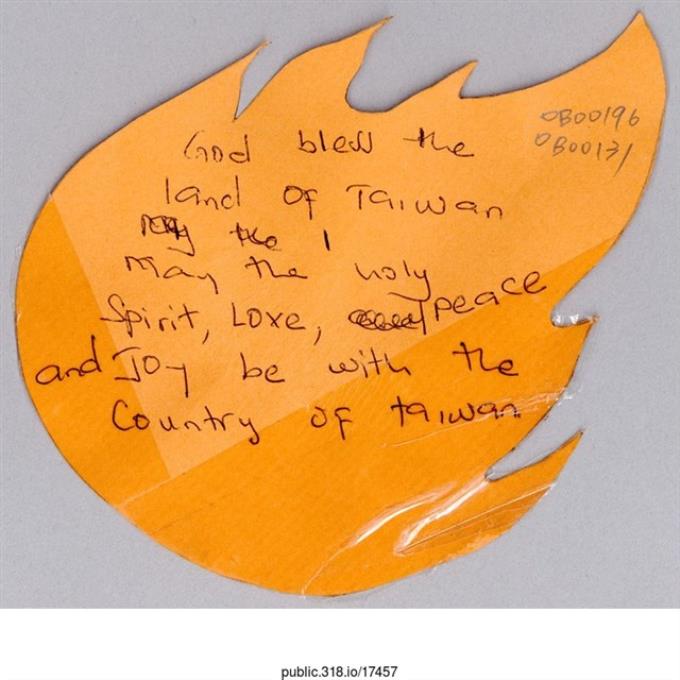 0B00196
0B00131
God bless the
land of Taiwan
the
May the holy
Spirit, Love, peace
and Joy be with the
Country of taiwan
public.318.io/17457